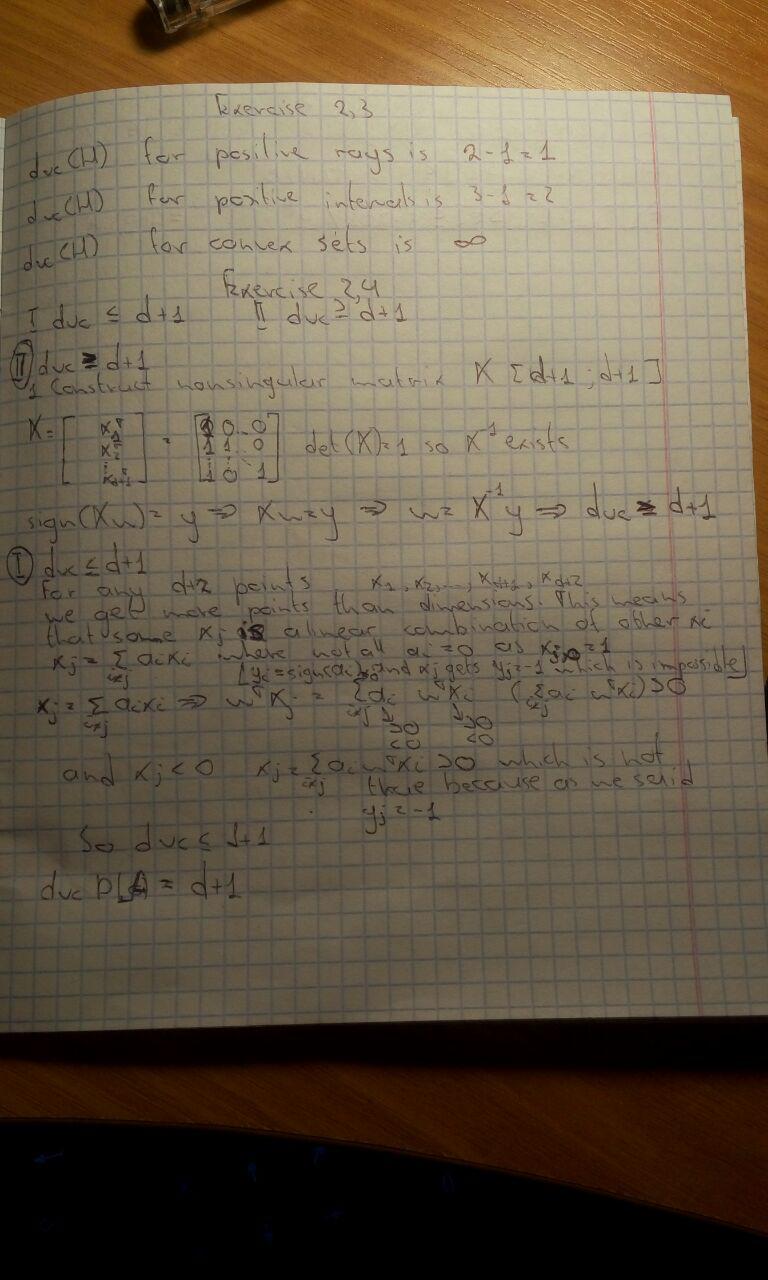 Exercise 2,3
dvc(H) for positive rays is 2-1=1
dvc(H) for positive intervals is 3-1=2
dvc(H) for convex sets is ∞
Exercise 2,4
I dvc ≤ d+1 II dvc ≥ d+1
II dvc ≥ d+1
1 Construct nonsingular matrix X [d+1 ; d+1]
X = [x₁ᵀ x₂ᵀ ⋮ xd+1ᵀ] = [1 0..0 1 1 0 ⋮ ⋮ ⋱ 1 0 1] det(X)=1 so X⁻¹ exists
sign(Xw)=y ⇒ Xw=y ⇒ w=X⁻¹y ⇒ dvc ≥ d+1
I dvc ≤ d+1
For any d+2 points x₁, x₂, ..., xd+1, xd+2
we get more points than dimensions. This means
that some xj is a linear combination of other xi
xj = Σ aixi where not all ai=0 as =1
i≠j [yi=sign(ai) and xj gets yj=-1 which is impossible]
xj = Σ aixi ⇒ wᵀxj = Σ ai wᵀxi (Σ ai wᵀxi) > 0
i≠j i≠j i≠j
>0 >0
<0 <0
and xj<0 xj = Σ ai wᵀxi >0 which is not
i≠j true because as we said
yj=-1
So dvc ≤ d+1
dvc PLA = d+1